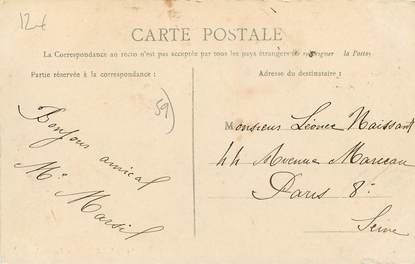 12€
CARTE POSTALE
La Correspondance au recto n'est pas acceptée par tous les pays étrangers (Se renseigner à la Poste)
Partie réservée à la correspondance :
Adresse du destinataire :
Bonjour amical
Marsil
Monsieur Léonce Naissant
44 Avenue Marceau
Paris 8e
Seine